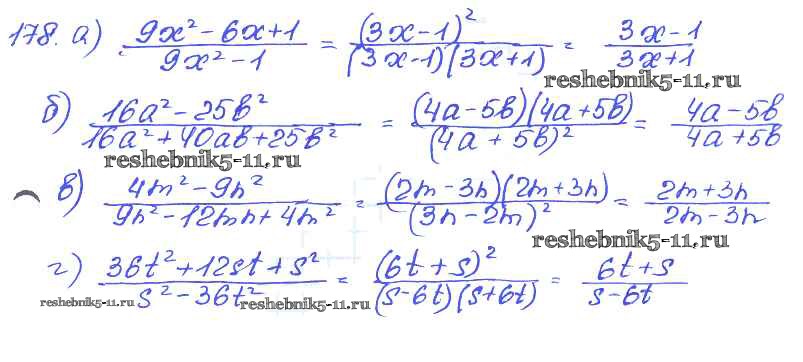 178. а) (9x² - 6x + 1)/(9x² - 1) = (3x - 1)²/((3x - 1)(3x + 1)) = (3x - 1)/(3x + 1)
reshebnik5-11.ru
б) (16a² - 25b²)/(16a² + 40ab + 25b²) = ((4a - 5b)(4a + 5b))/(4a + 5b)² = (4a - 5b)/(4a + 5b)
reshebnik5-11.ru
в) (4m² - 9n²)/(9n² - 12mn + 4m²) = ((2m - 3n)(2m + 3n))/(3n - 2m)² = (2m + 3n)/(2m - 3n)
reshebnik5-11.ru
г) (36t² + 12st + s²)/(s² - 36t²) = (6t + s)²/((s - 6t)(s + 6t)) = (6t + s)/(s - 6t)
reshebnik5-11.ru reshebnik5-11.ru